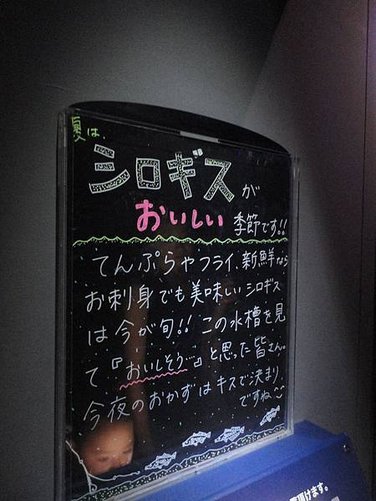 夏は、
シロギスが
おいしい季節です!!
てんぷらやフライ、新鮮なら
お刺身でも美味しいシロギス
は今が旬!!この水槽を見
て『おいしそう…』と思った皆さん。
今夜のおかずはキスで決まり
ですね〜
頂けます。